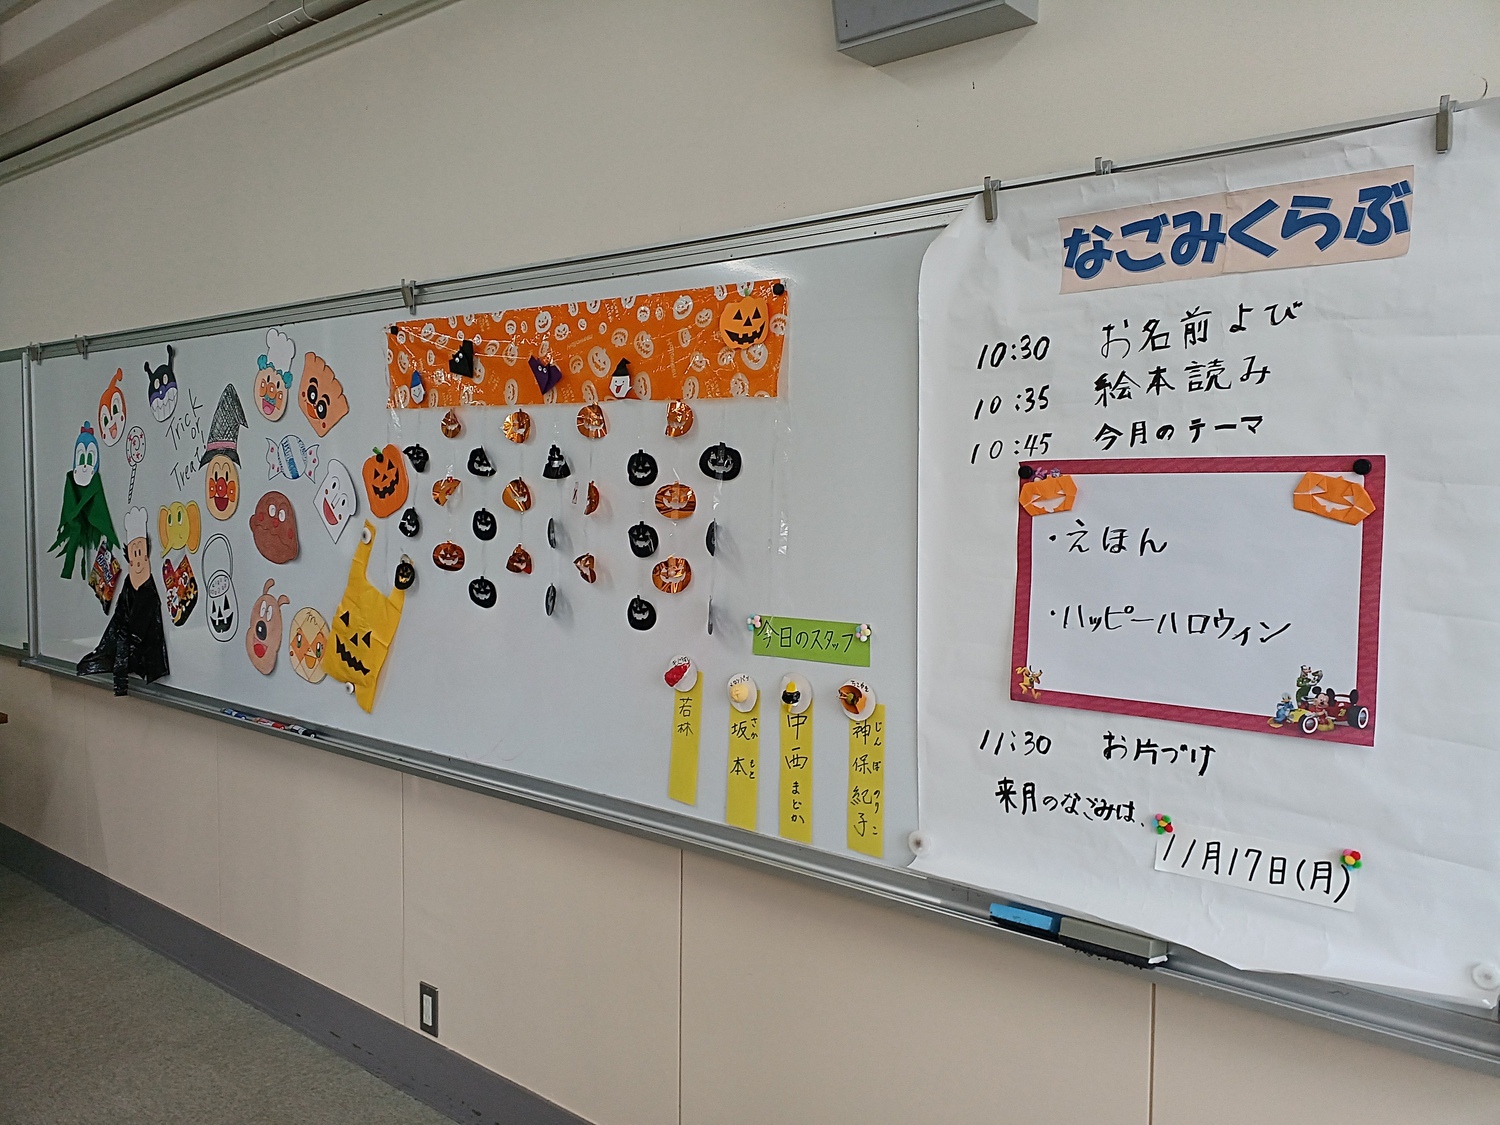 Trick
or
Treat
なごみくらぶ
10:30 お名前よび
10:35 絵本読み
10:45 今月のテーマ
・えほん
・ハッピーハロウィン
11:30 お片づけ
来月のなごみは、
11月17日(月)
今日のスタッフ
若林
坂本 さかもと
中西まどか
神保紀子 じんぼのりこ